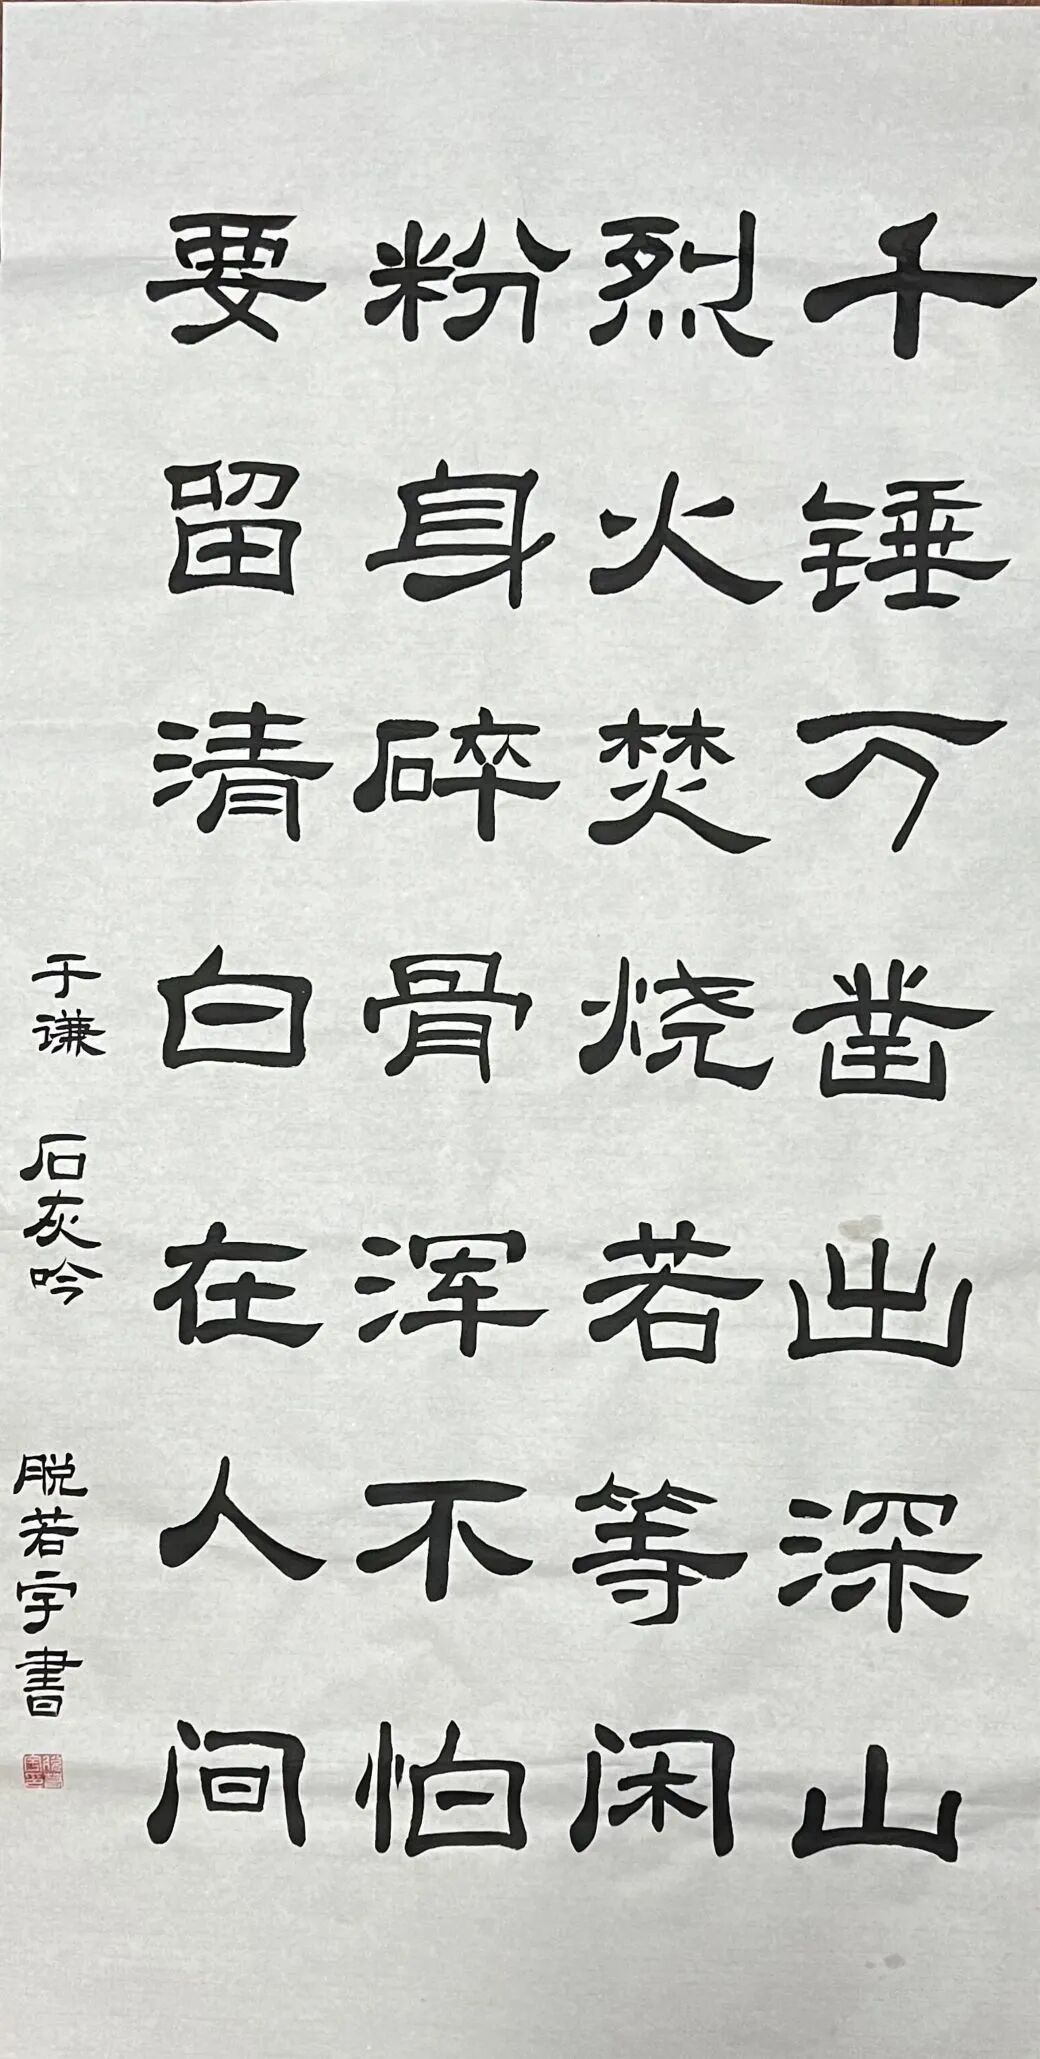 千锤万凿出深山
烈火焚烧若等闲
粉身碎骨浑不怕
要留清白在人间
于谦 石灰吟 脱若字書